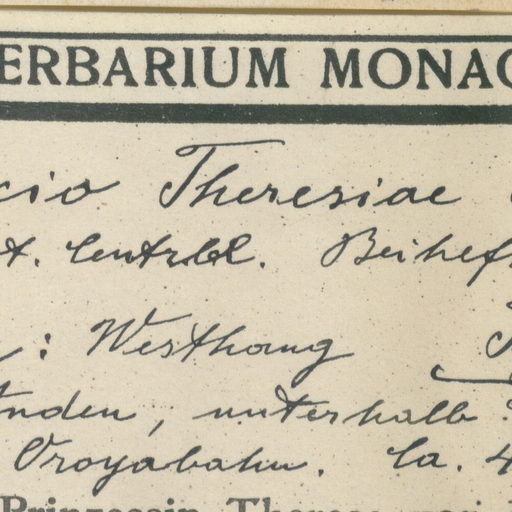 ERBARIUM MONAC
cio Theresiae
t. Centrbl. Beihef
: Westhang
nden, unterhalb
Oroyabahn. Ca. 4
Prinzessin Therese von